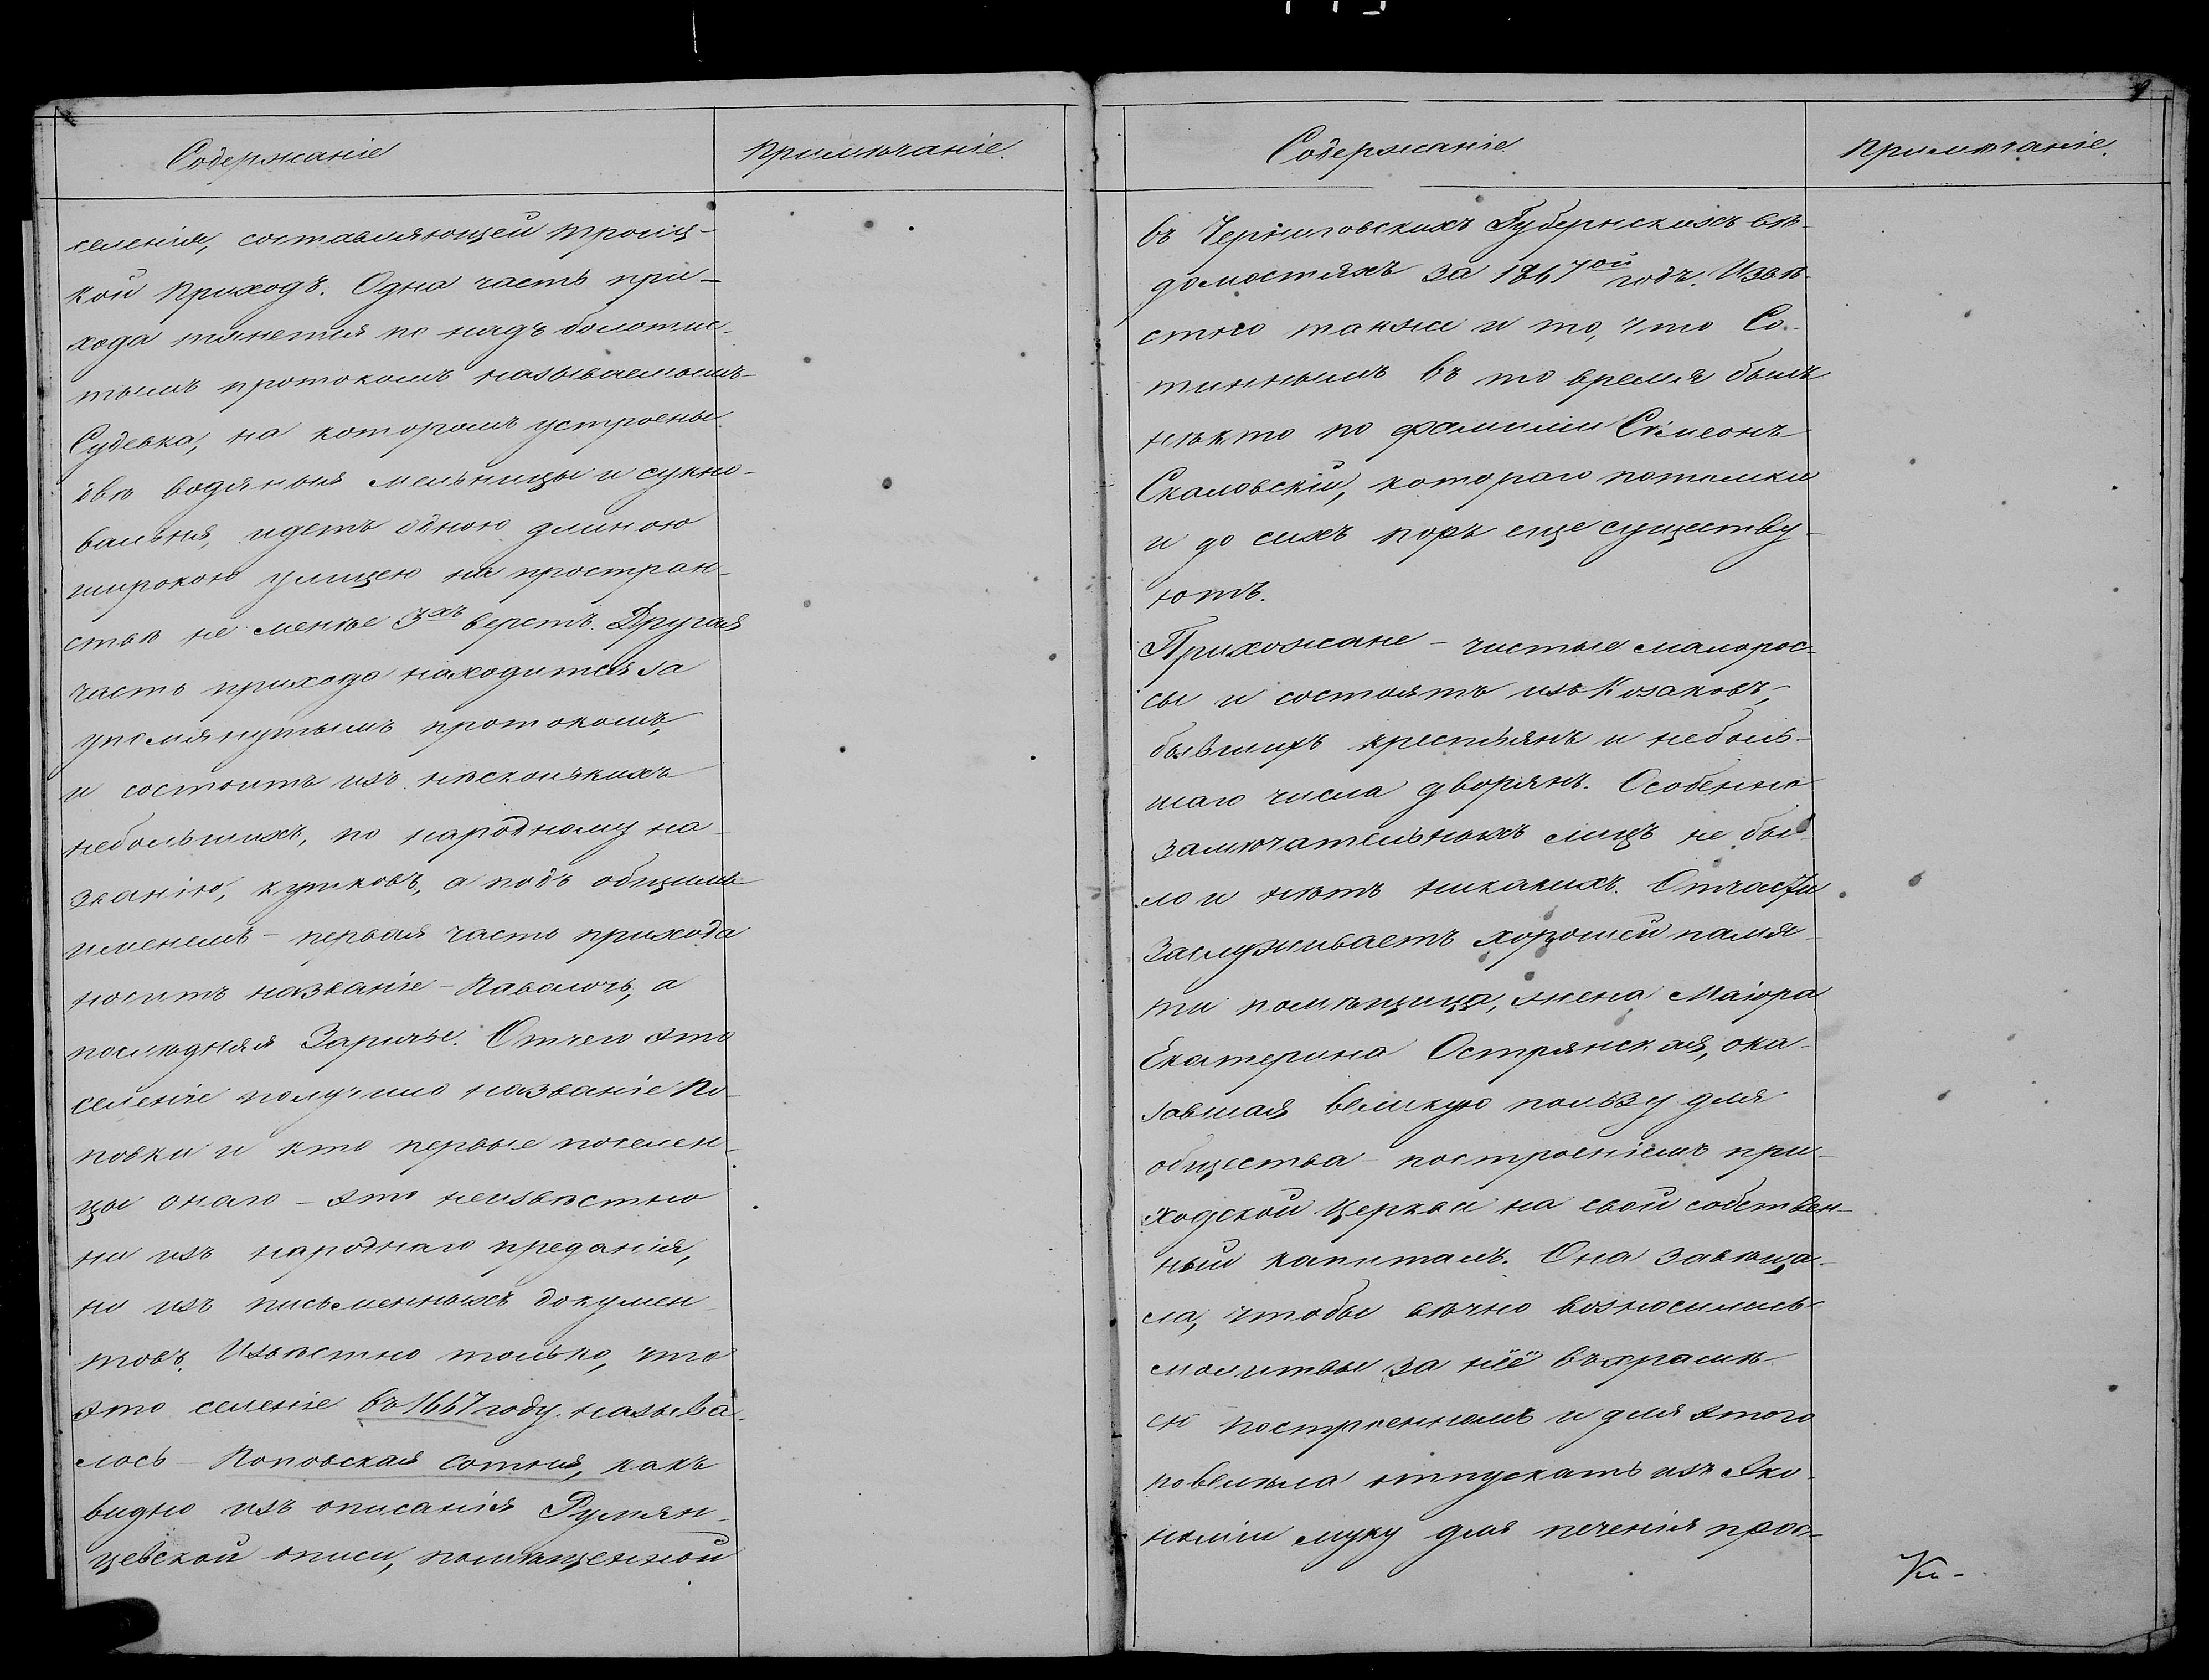 Содержаніе
Примѣчаніе.
селенія, составляющей Троиц-
кой приходъ. Одна часть при-
хода тянется по надъ болотис-
тымъ протокомъ называемымъ
Судевка, на которомъ устроены
двѣ водяныя мельницы и сукно-
вальня, идетъ одною длиною
широкою улицею на простран-
ствѣ не менѣе 3хъ верстъ. Другая
часть прихода находится за
упомянутымъ протокомъ,
и состоитъ изъ нѣсколькихъ
небольшихъ, по народному на-
званію, кутковъ, а подъ общимъ
именемъ – первая часть прихода
носитъ названіе – Паволочь, а
послѣдняя Заричье. Отчего это
селеніе получило названіе По-
повки и кто первые поселен-
цы онаго – это неизвѣстно
ни изъ народнаго преданія,
ни изъ письменныхъ докумен-
товъ. Извѣстно только, что
это селеніе въ 1667 году называ-
лось – Поповская сотня, какъ
видно изъ описанія Румян-
цевской описи, помѣщенной
Содержаніе
Примѣчаніе.
въ Черниговскихъ Губернскихъ вѣ-
домостяхъ за 1847ой годъ. Извѣ-
стно также и то, что Со-
тиннымъ въ то время былъ
нѣкто по фамиліи Сѵмеонъ
Скаловскій, котораго потомки
и до сихъ поръ еще существу-
ютъ.
Прихожане – чистые малорос-
сы и состоятъ изъ Козаковъ,
бывшихъ крестьянъ и неболь-
шаго числа дворянъ. Особенно
замѣчательныхъ лицъ не бы-
ло и нѣтъ никакихъ. Отчасти
заслуживаетъ хорошей памя-
ти помѣщица, жена Маіора
Екатерина Острянская, ока-
завшая великую пользу для
общества – построеніемъ при-
ходской церкви на свой собствен-
ный капиталъ. Она завѣща-
ла, чтобы вѣчно возносились
молитвы за неё въ храмѣ
ею построенномъ и для этого
повелѣла отпускать изъ Эко-
номіи муку для печенія прос-